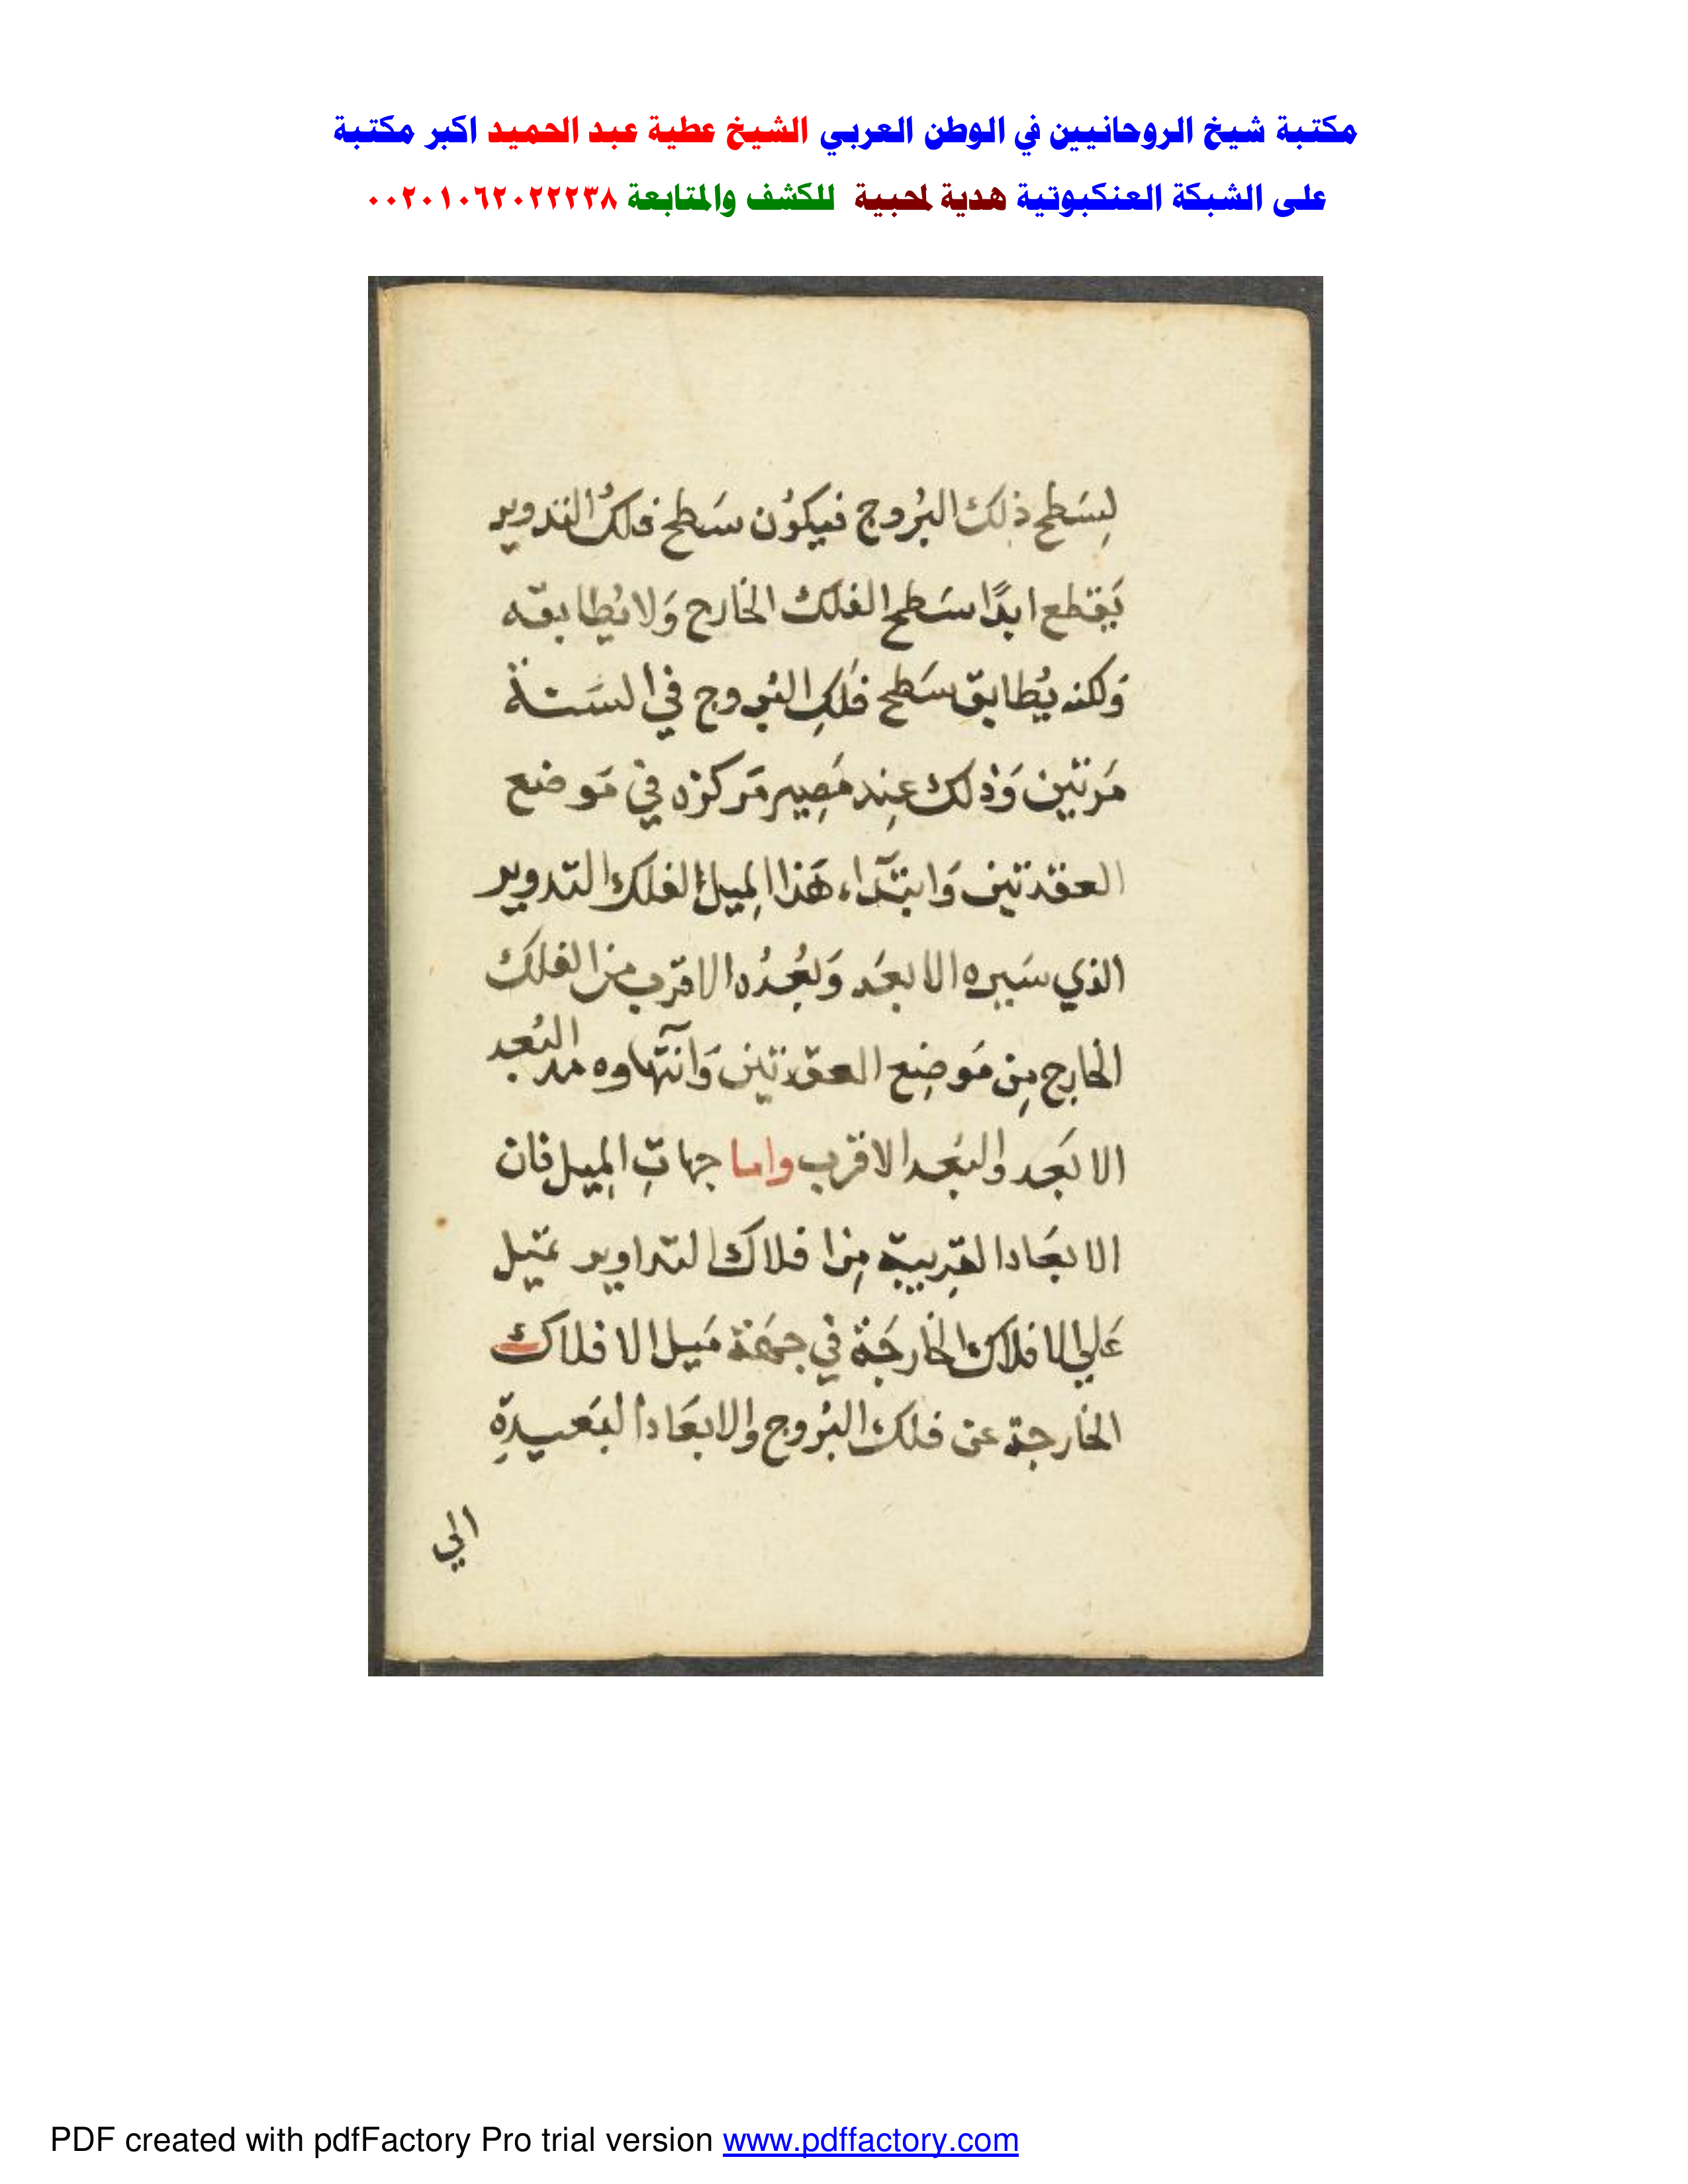 مكتبة شيخ الروحانيين في الوطن العربي الشيخ عطية عبد الحميد اكبر مكتبة
على الشبكة العنكبوتية هدية لمحبية للكشف والمتابعة ٠٠٢٠١٠٦٢٠٢٢٢٣٨
لِسَطح ذلك البُروج فيكوُن سَطح فلك التدوير
يَقطع ابدًا سَطح الفلك الخارج وَلا يُطابقه
وَلكنه يُطابق سَطح فلكِ البُروج في السَنة
مَرتين وَذلك عِند مَصِير مَركزه في مَوضع
العقدتين وَابتدآء هَذا الميل لفلك التدوير
الذي سَيره الابعَد وَبُعدُه الاقرب من الفلك
الخارج مِن مَوضِع العقدتين وَانتهآوه البُعد
الابَعد والبُعد الاقرب واما جهاتِ المِيل فان
الابعَاد القِريبة مِن افلاك التداوير تمَيل
عَلي الافلاك الخارجَة في جهَة مَيل الافلاك
الخارجة عن فلك البُروج والابعَاد البَعيدةِ
الي
PDF created with pdfFactory Pro trial version www.pdffactory.com